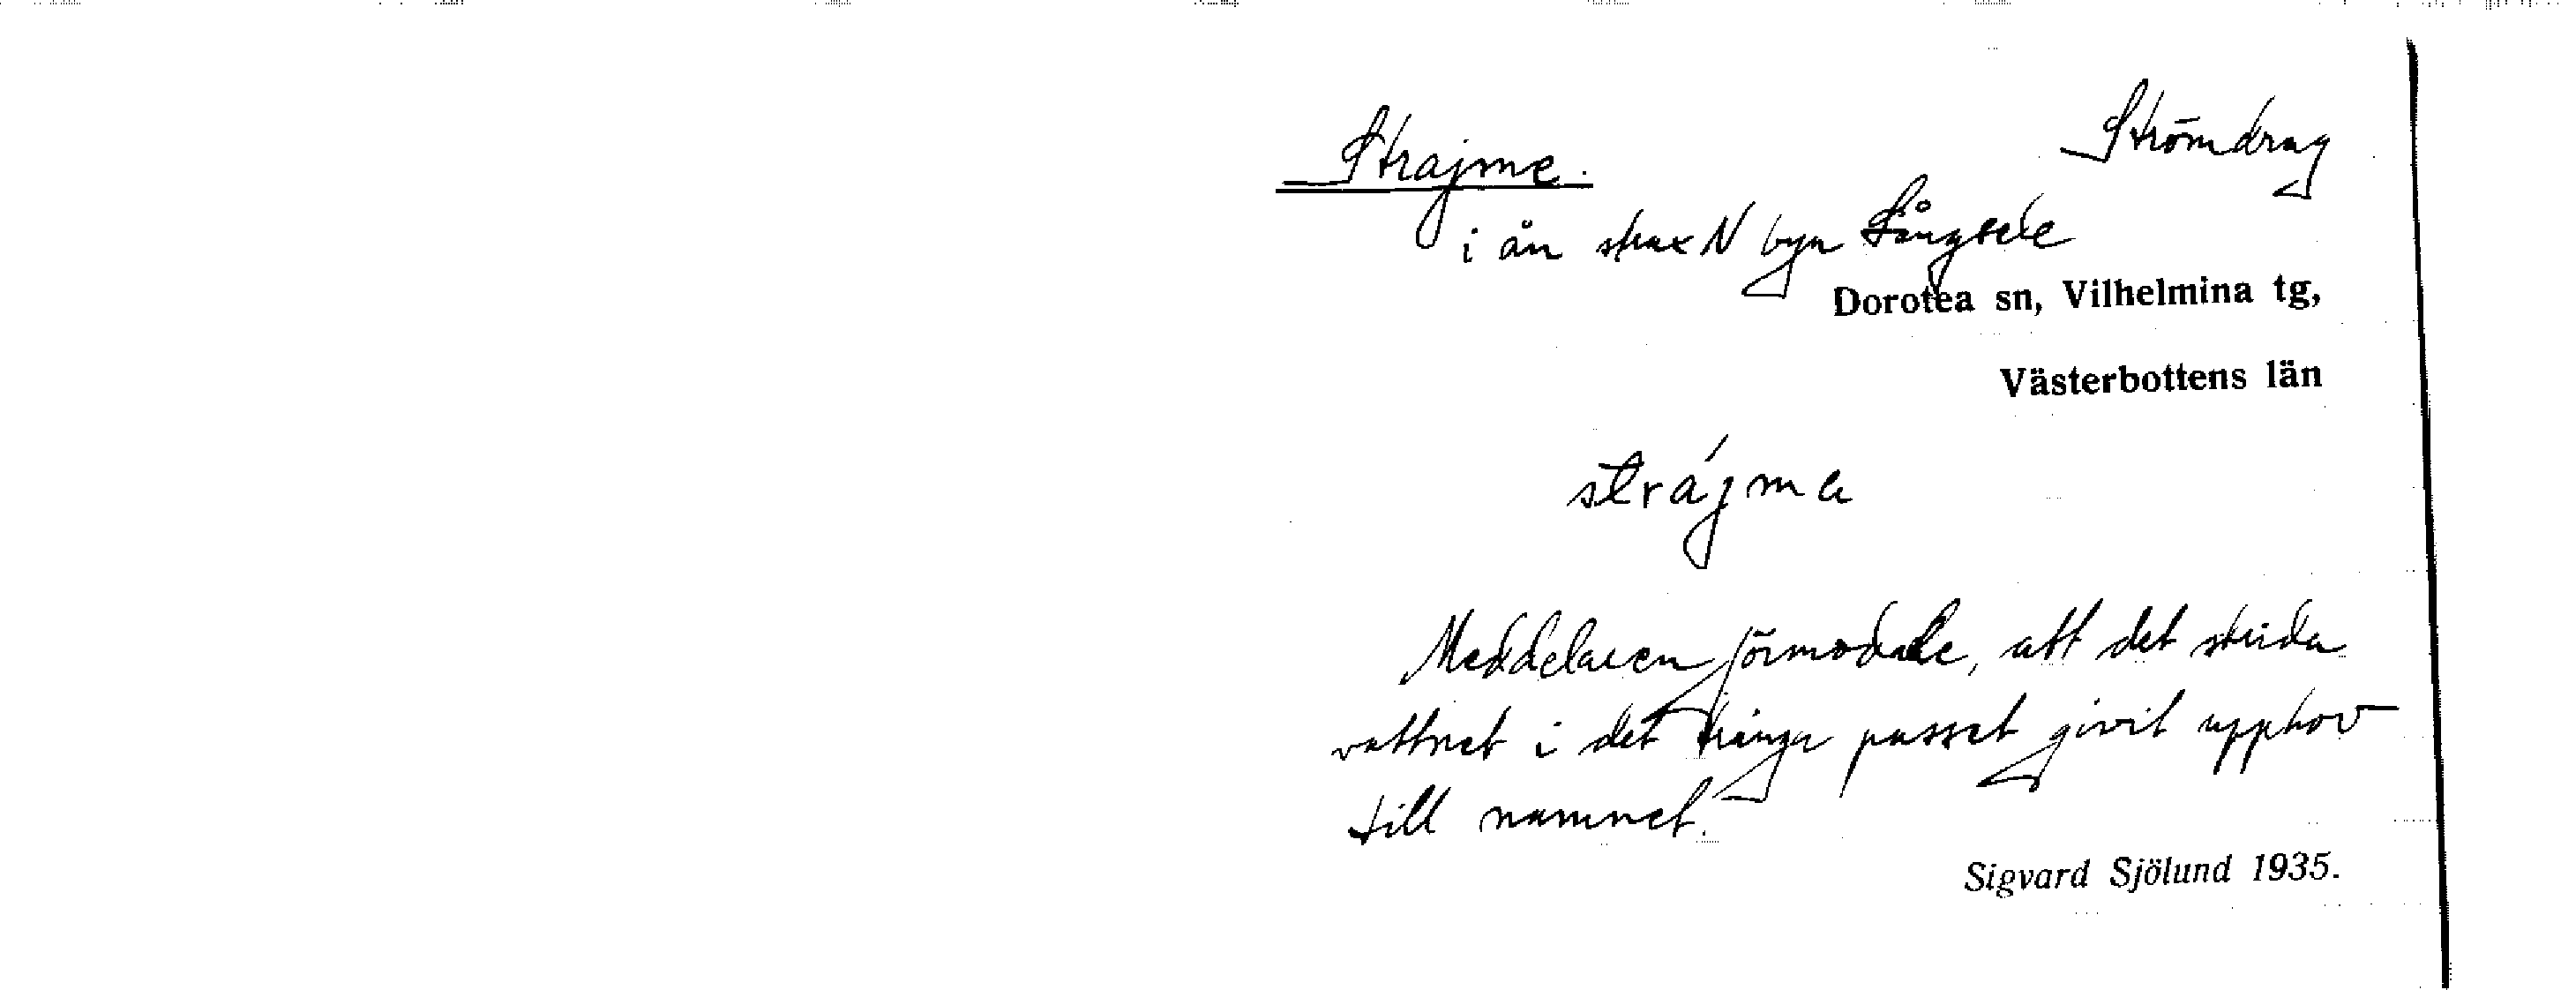 Strajme. Strömdrag
i ån strax N byn Långsele
Dorotea sn, Vilhelmina tg,
Västerbottens län
strájma
Meddelaren förmodade, att det strida
vattnet i det trånga passet givit upphov
till namnet.
Sigvard Sjölund 1935.